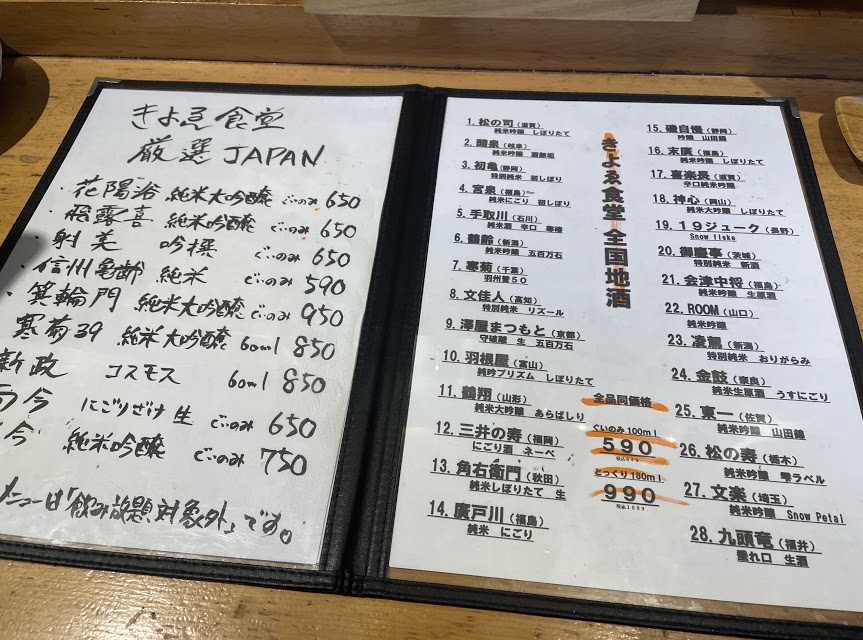 きよゑ食堂
厳選 JAPAN
・花陽浴 純米大吟醸 ぐいのみ 650
・飛露喜 純米吟醸 ぐいのみ 650
・射美 吟撰 ぐいのみ 650
・信州亀齢 純米 ぐいのみ 590
・箕輪門 純米大吟醸 ぐいのみ 950
寒菊39 純米大吟醸 60ml 850
新政 コスモス 60ml 850
今 にごりざけ 生 ぐいのみ 650
今 純米吟醸 ぐいのみ 750
メニューは「飲み放題対象外」です。
きよゑ食堂 全国地酒
1. 松の司（滋賀）
純米吟醸 しぼりたて
2. 醴泉（岐阜）
純米吟醸 酒無垢
3. 初亀（静岡）
特別純米 初しぼり
4. 宮泉（福島）
純米にごり 初しぼり
5. 手取川（石川）
純米酒 辛口
6. 鶴齢（新潟）
純米吟醸 五百万石
7. 寒菊（千葉）
羽州誉50
8. 文佳人（高知）
特別純米 リズール
9. 澤屋まつもと（京都）
守破離 生 五百万石
10. 羽根屋（富山）
純吟プリズム しぼりたて
11. 鶴翔（山形）
純米大吟醸 あらばしり
12. 三井の寿（福岡）
にごり酒 ネーベ
13. 角右衛門（秋田）
純米しぼりたて 生
14. 廣戸川（福島）
純米 にごり
全品同価格
ぐいのみ100ml
590
税込649
とっくり180ml
990
税込1089
15. 磯自慢（静岡）
吟醸 山田錦
16. 末廣（福島）
純米吟醸 しぼりたて
17. 喜楽長（滋賀）
辛口純米吟醸
18. 神心（岡山）
純米大吟醸 しぼりたて
19. 19ジューク（長野）
Snow flake
20. 御慶事（茨城）
特別純米 新酒
21. 会津中将（福島）
純米吟醸 生原酒
22. ROOM（山口）
純米吟醸
23. 凌駕（新潟）
特別純米 おりがらみ
24. 金鼓（奈良）
純米生原酒 うすにごり
25. 東一（佐賀）
純米吟醸 山田錦
26. 松の寿（栃木）
純米吟醸 雫ラベル
27. 文楽（埼玉）
純米吟醸 Snow Petal
28. 九頭竜（福井）
垂れ口 生酒